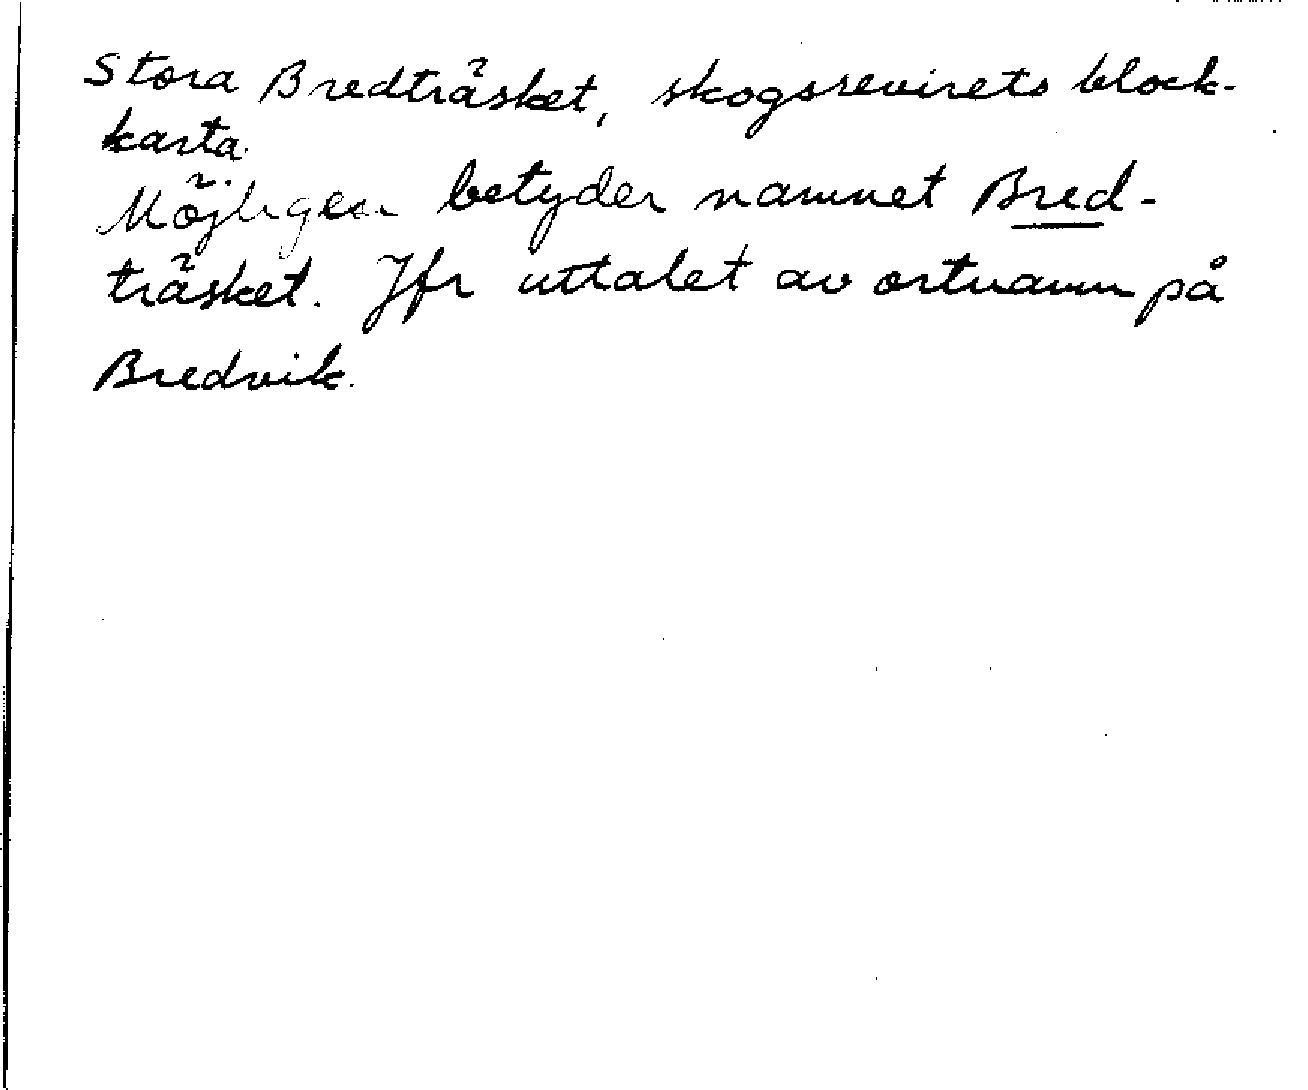 Stora Bredträsket, skogsrevirets block-
karta.
Möjligen betyder namnet Bred-
träsket. Jfr uttalet av ortnamn på
Bredvik.